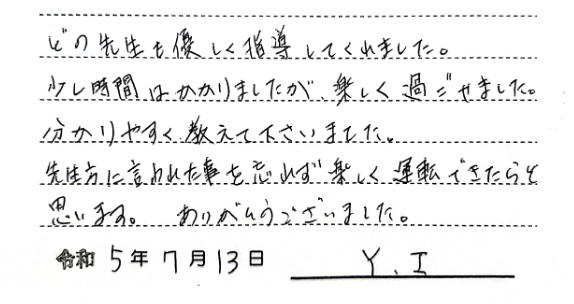 どの先生も優しく指導してくれました。
少し時間はかかりましたが、楽しく過ごせました。
分かりやすく教えて下さいました。
先生方に言われた事を忘れず楽しく運転できたらと
思います。 ありがとうございました。
令和 5年 7月 13日 Y.I